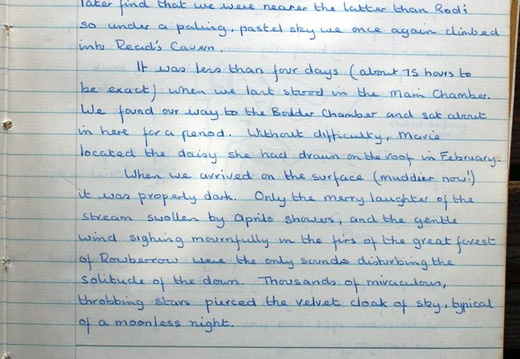 later find that we were nearer the latter than Rod's
so under a paling, pastel sky we once again climbed
into Read's Cavern.
It was less than four days (about 75 hours to
be exact) when we last stood in the Main Chamber.
We found our way to the Boulder Chamber and sat about
in here for a period. Without difficulty, Marie
located the daisy she had drawn on the roof in February.
When we arrived on the surface (muddier now!)
it was properly dark. Only the merry laughter of the
stream swollen by Aprils showers, and the gentle
wind sighing mournfully in the firs of the great forest
of Rowberrow were the only sounds disturbing the
solitude of the down. Thousands of miraculous,
throbbing stars pierced the velvet cloak of sky, typical
of a moonless night.